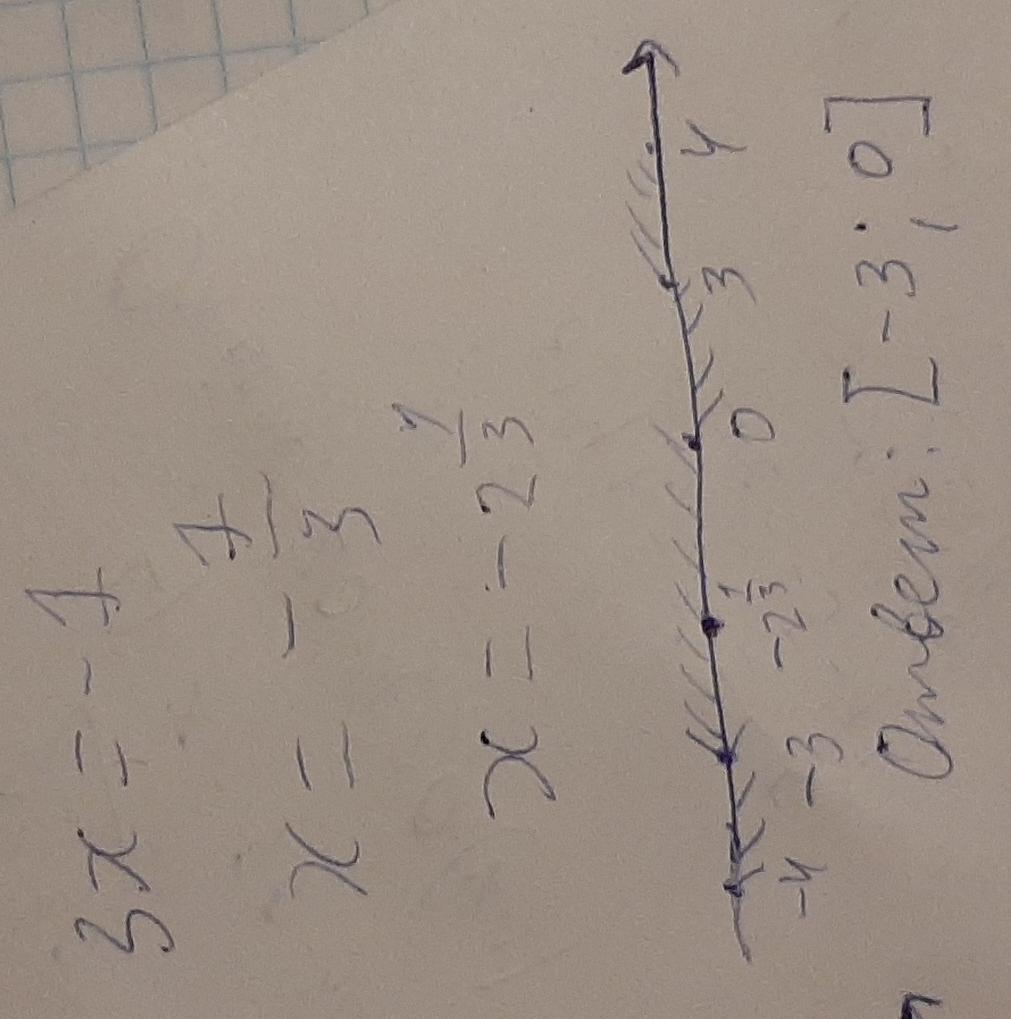 3x = -7
x = -7/3
x = -2 1/3
-4 -3 -2 1/3 0 3 4
Ответ: [-3; 0]